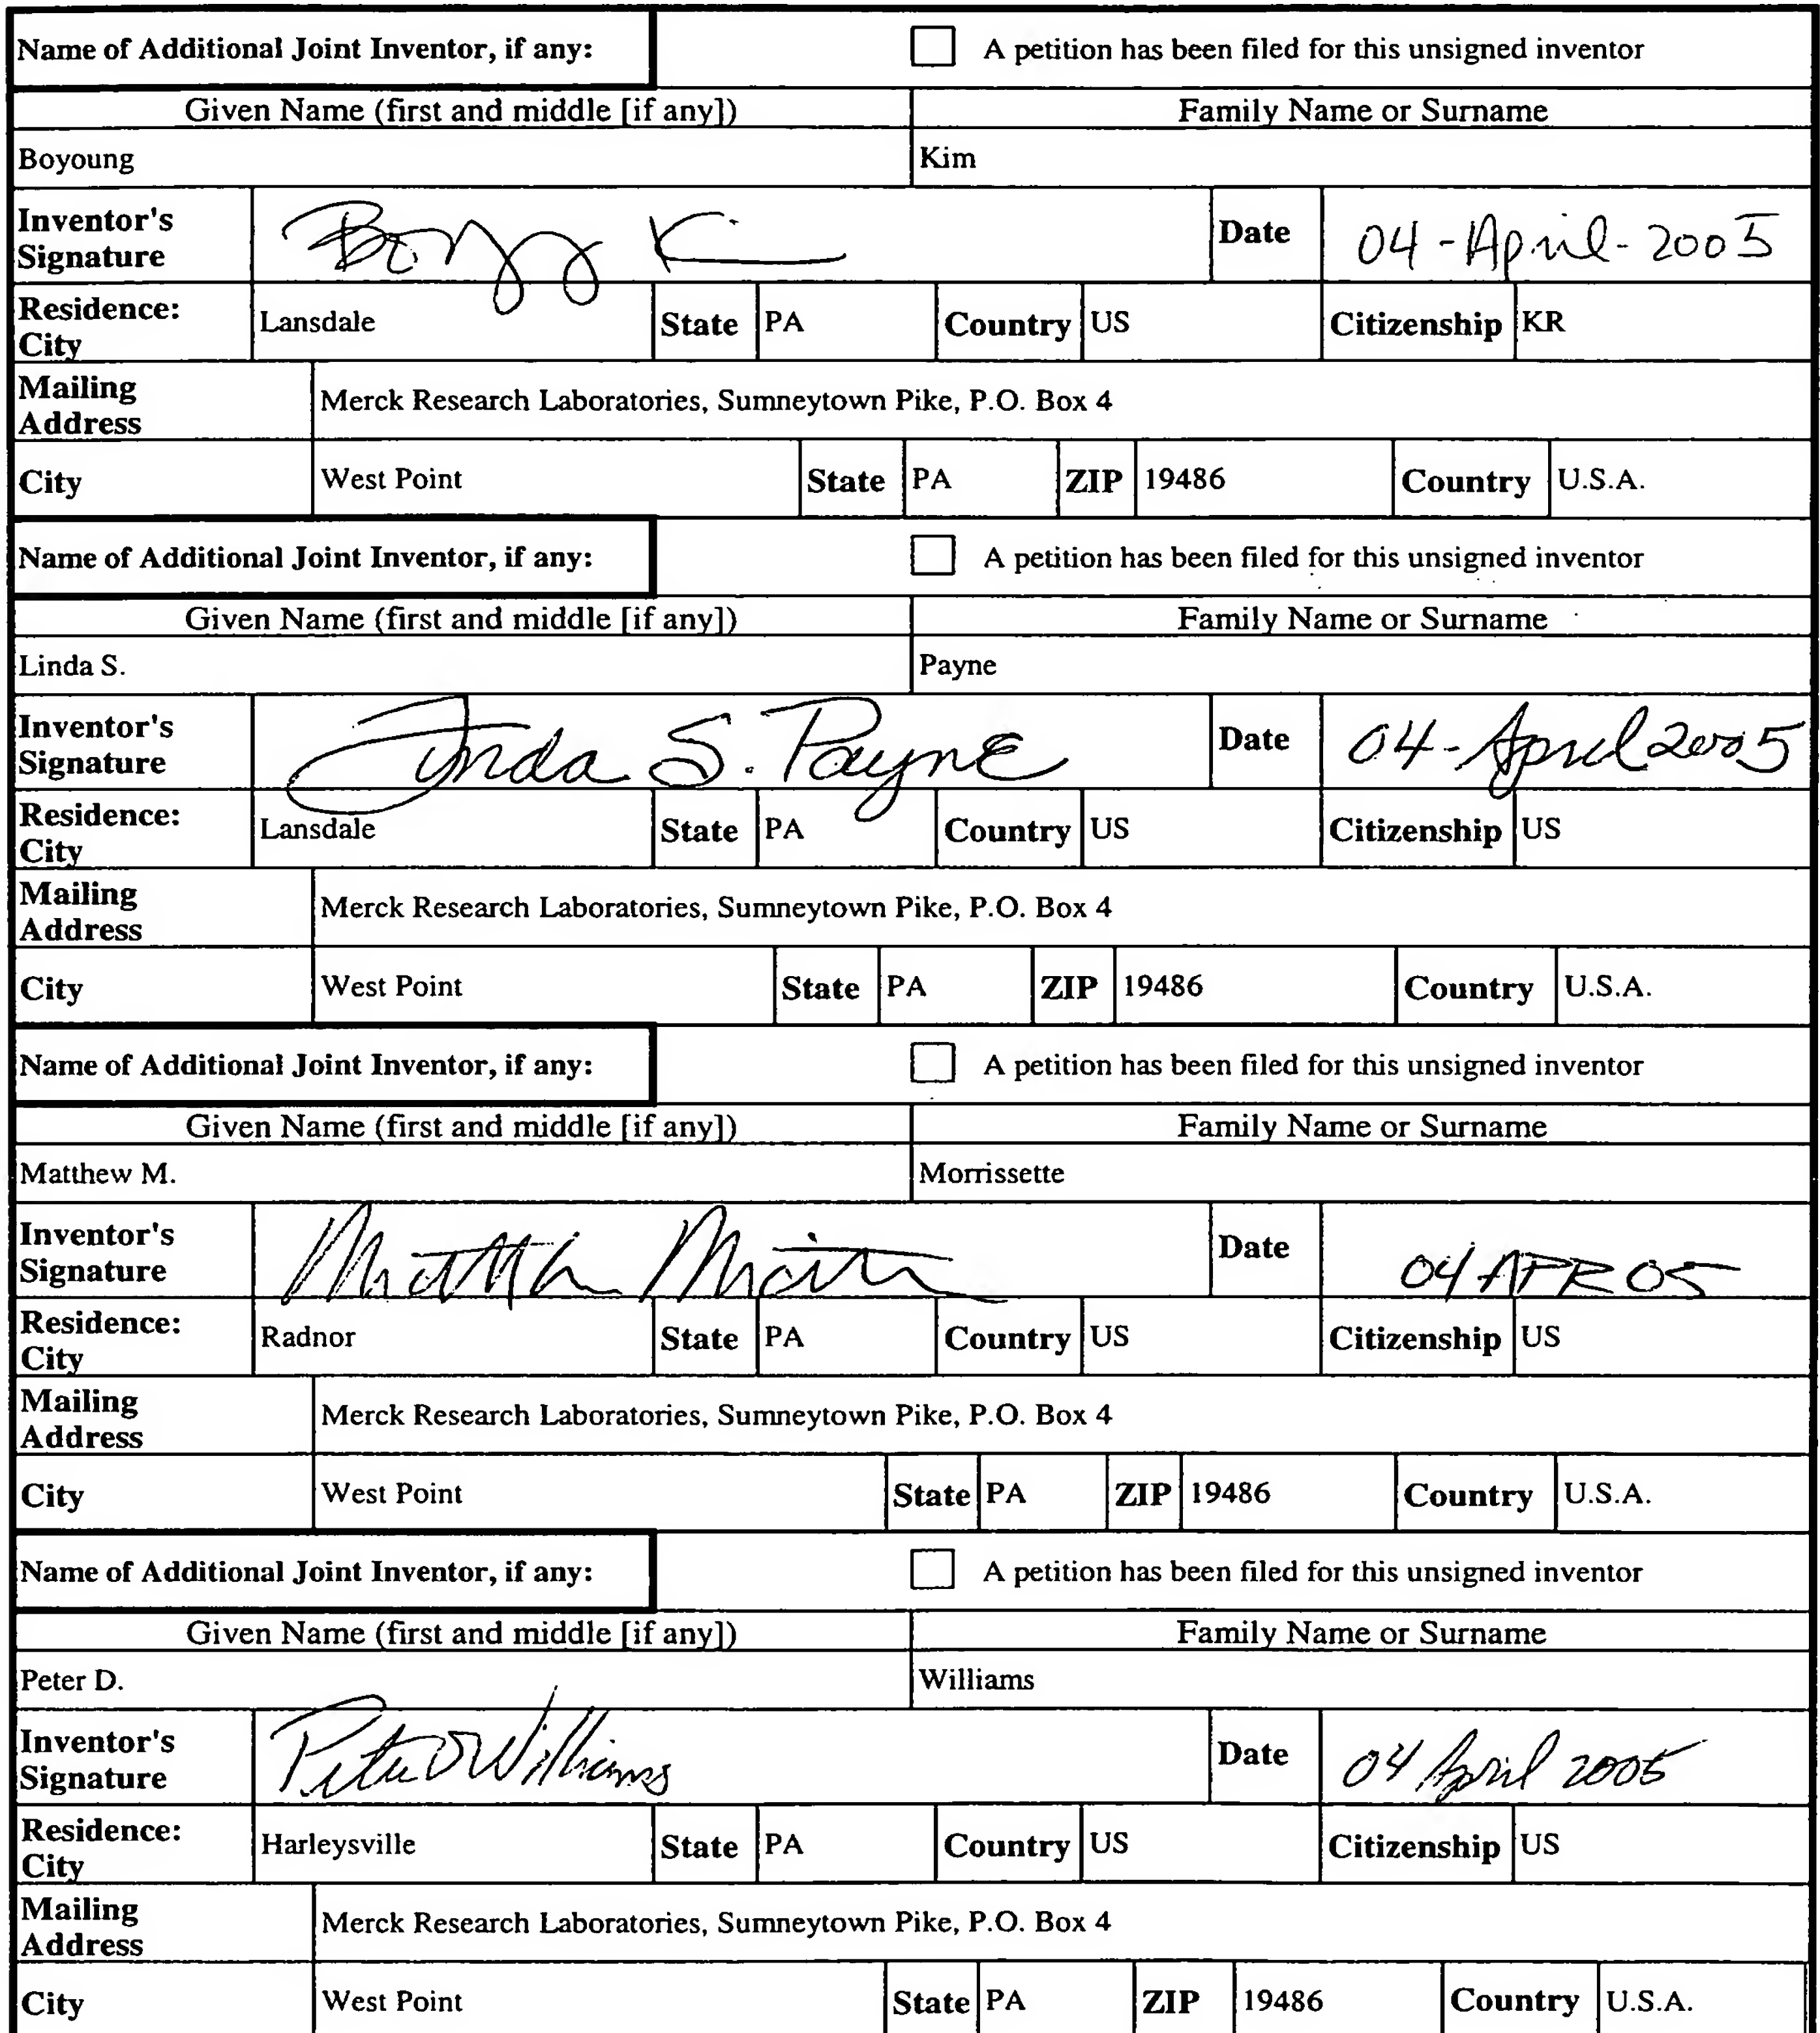 Name of Additional Joint Inventor, if any: A petition has been filed for this unsigned inventor
Given Name (first and middle [if any]) Family Name or Surname
Boyoung Kim
Inventor's Signature Date 04-April-2005
Residence: City Lansdale State PA Country US Citizenship KR
Mailing Address Merck Research Laboratories, Sumneytown Pike, P.O. Box 4
City West Point State PA ZIP 19486 Country U.S.A.
Name of Additional Joint Inventor, if any: A petition has been filed for this unsigned inventor
Given Name (first and middle [if any]) Family Name or Surname
Linda S. Payne
Inventor's Signature Linda S. Payne Date 04-April 2005
Residence: City Lansdale State PA Country US Citizenship US
Mailing Address Merck Research Laboratories, Sumneytown Pike, P.O. Box 4
City West Point State PA ZIP 19486 Country U.S.A.
Name of Additional Joint Inventor, if any: A petition has been filed for this unsigned inventor
Given Name (first and middle [if any]) Family Name or Surname
Matthew M. Morrissette
Inventor's Signature Date 04 APR 05
Residence: City Radnor State PA Country US Citizenship US
Mailing Address Merck Research Laboratories, Sumneytown Pike, P.O. Box 4
City West Point State PA ZIP 19486 Country U.S.A.
Name of Additional Joint Inventor, if any: A petition has been filed for this unsigned inventor
Given Name (first and middle [if any]) Family Name or Surname
Peter D. Williams
Inventor's Signature Peter D Williams Date 04 April 2005
Residence: City Harleysville State PA Country US Citizenship US
Mailing Address Merck Research Laboratories, Sumneytown Pike, P.O. Box 4
City West Point State PA ZIP 19486 Country U.S.A.